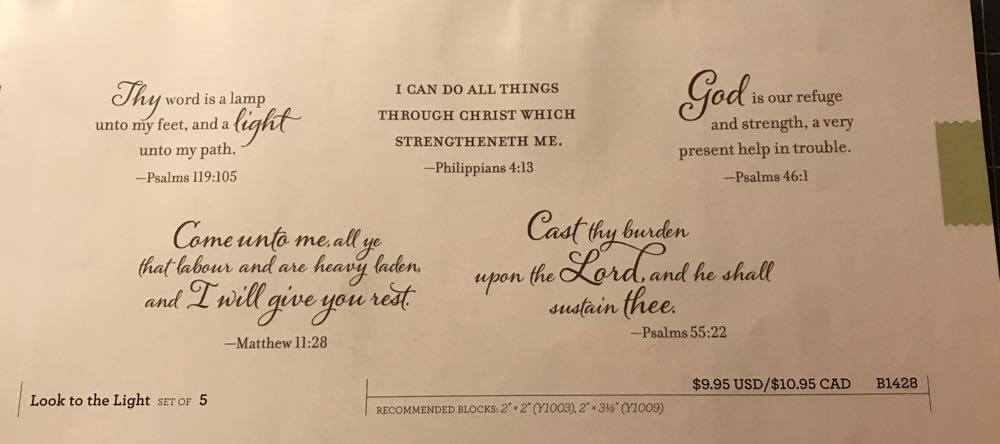 Thy word is a lamp
unto my feet, and a light
unto my path.
—Psalms 119:105
I CAN DO ALL THINGS
THROUGH CHRIST WHICH
STRENGTHENETH ME.
—Philippians 4:13
God is our refuge
and strength, a very
present help in trouble.
—Psalms 46:1
Come unto me, all ye
that labour and are heavy laden,
and I will give you rest.
—Matthew 11:28
Cast thy burden
upon the Lord, and he shall
sustain thee.
—Psalms 55:22
Look to the Light SET OF 5
$9.95 USD/$10.95 CAD B1428
RECOMMENDED BLOCKS: 2" × 2" (Y1003), 2" × 3½" (Y1009)